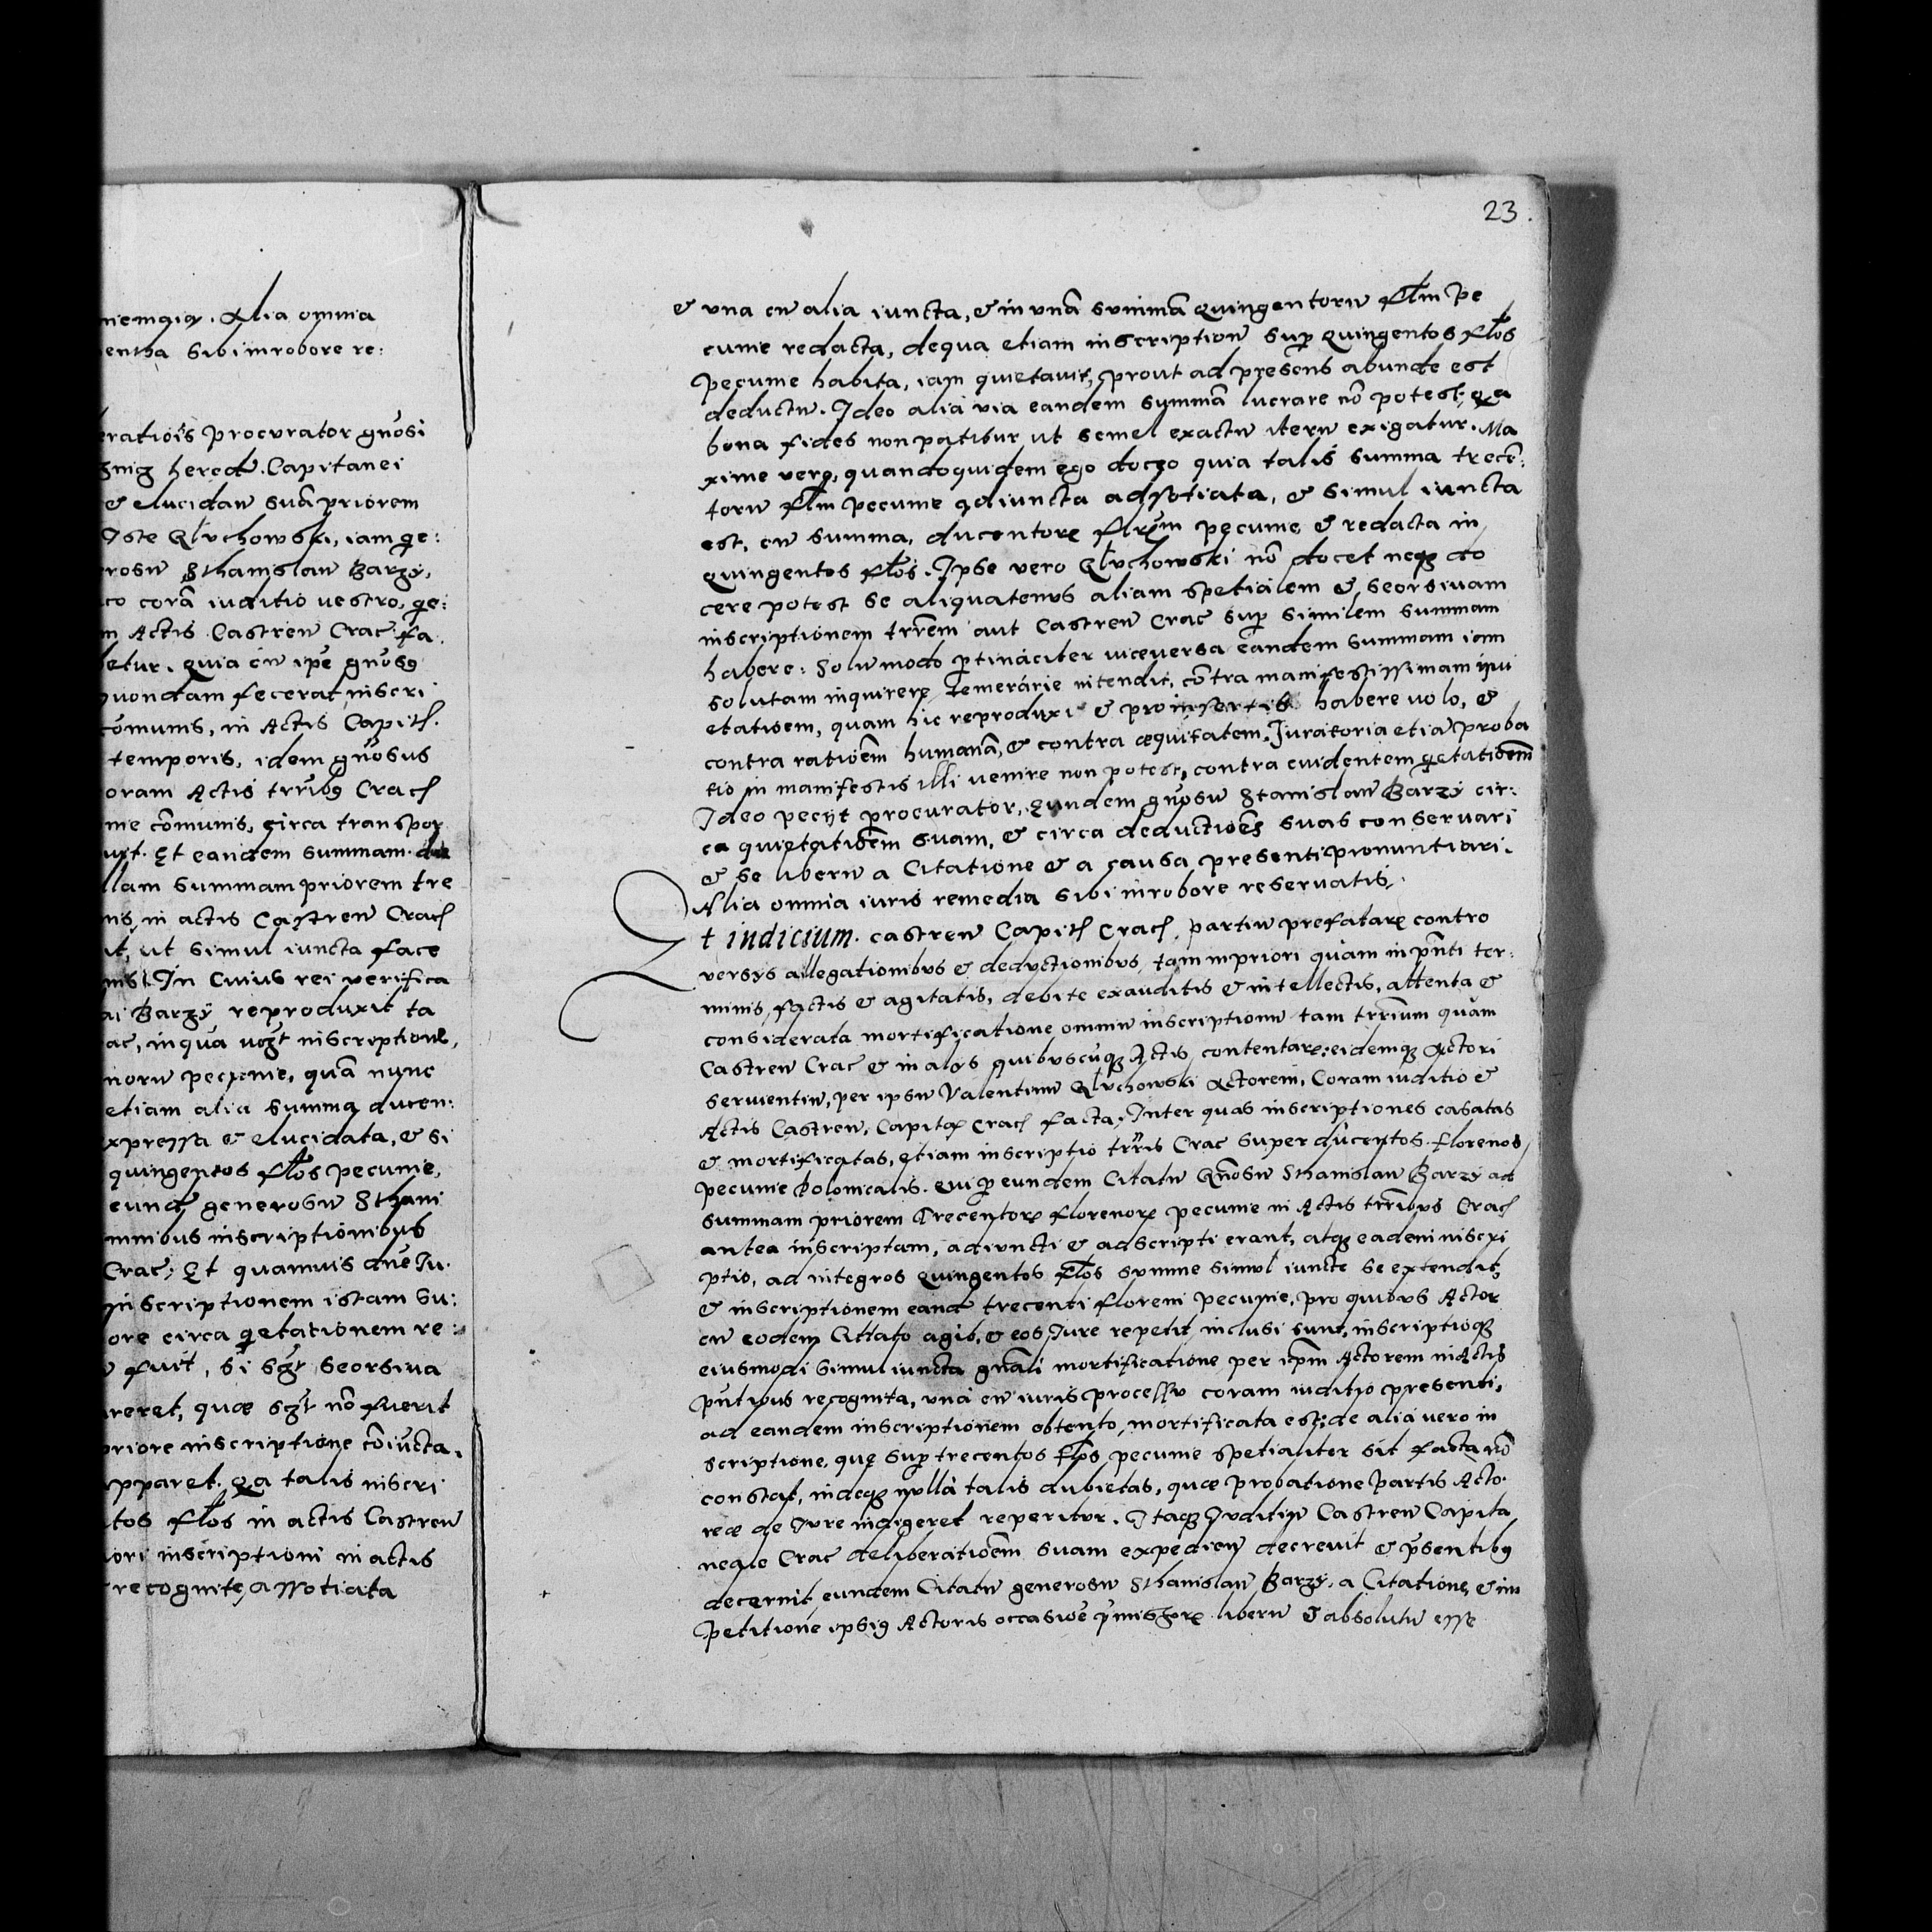 niemaią. Alia omnia
sibi in robore re:
eratiois procurator gnosi
heredū. Capitanei
& elucidaū suā priorem
Iste Gluchowski, iam qe:
rosū Sthanislaū Barzÿ,
co corā iuditio vestro, qe:
m Actis Castreū Crac fa.
betur. quia cū ipe gnosꝯ
quondam fecerat inscri
comunis, in Actis Capitł.
temporis, idem gnosus
oram Actis trribꝯ Cracł
me cōmunis, circa transpor
vit. Et eandem summam duc
llam summam priorem tre
nis, in actis Castreū Cracł
ut, ut simul iuncta face
nis. In cuius rei verifica
ai Barzÿ reproduxit ta
ac, in qua vꝫt inscriptione,
norū pecunie, quā nunc
etiam alia summa ducen:
xpressa & elucidata, & si
quingentos fłos pecunie,
eund generosū Sthani
mnibus inscriptionibus
Crac; Et quamuis due Iu.
inscriptionem istam su:
ore circa qietationem re:
fuit, si sꝫt seorsiva
reret, quæ sꝫt nō fuerit
priore inscriptione cōiuncta.
apparet. qa talis inscri
tos fłos in actis Castreū
iori inscriptioni in actis
recognite, assotiata
23.
& una cū alia iuncta, & in unā summā quingentorū fłm pe
cunie redacta, de qua etiam inscriptioū sup quingentos fłos
pecunie habita, iam quietavit, prout ad presens abunde est
deductū. Ideo alia via eandem summā lucrare nō potest, qa
bona fides non patitur ut semel exactū iterū exigatur. Ma
xime vero, quandoquidem ego doceo quia talis summa trecē:
torū fłm pecunie adiuncta adsotiata, & simul iuncta
est, cū summa, ducentorꝝ flrm pecunie & redacta in
quingentos fłos. Ipse vero Gluchowski nō docet neqꝫ do
cere potest se aliquatenus aliam spetialem & seorsivam
inscriptionem trrem aut Castreū Crac sup similem summam
habere: Solūmodo ptinaciter viceversa eandem summam iam
solutam inquirere temerárie intendit, cōtra manifestissimam qui
etatioem, quam hic reproduxi & pro insertis habere volo, &
contra ratioēm humanā, & contra æquitatem. Iuratoria etiā proba
tio in manifestis illi venire non potest, contra evidentem qetatioēm
Ideo peciit procurator, eundem gnosū Stanislaū Barzÿ cir:
ca quietatioēm suam, & circa deductioēs suas conservari
& se liberū a Citatione & a causa presenti pronuntiari.
Alia omnia iuris remedia sibi in robore reservatis.
Et iudicium castreū Capitł Cracł, partiū prefatarꝝ contro
versys allegationibus & deductionibus, tam in priori quàm in pnti ter:
minis, factis & agitatis, debite exauditis & intellectis, attenta &
considerata mortificatione omniū inscriptionū tam trrium quàm
Castreū Crac & in alys quibuscūqꝫ Actis contentarꝝ, eidemqꝫ Actori
servientiū, per ipsū Valentinū Gluchowski Actorem, Coram iuditio &
Actis Castreū, Capitꝝ Cracł facta; Inter quas inscriptiones casatas
& mortificatas, etiam inscriptio trris Crac super dùcentos florenos,
pecunie Polonicalis. qui p eundem Citatū Gnosū Sthanislaū Barzÿ ad
summam priorem Trecentorꝝ florenorꝝ pecunie in Actis trribus Cracł
antea inscriptam, adiuncti & adscripti erant, atqꝫ eadem inscri
ptio, ad integros quingentos fłos summe simul iuncte se extendit,
& inscriptionem eand trecenti floreni pecunie, pro quibus Actor
cū eodem Cittato agit, & eos Iure repetit, inclusi sunt, inscriptioqꝫ
eiusmodi simul iuncta gnali mortificatione per ipm Actorem in Actis
pntibus recognita, unà cū iuris processu coram iuditio presenti,
ad eandem inscriptionem obtento, mortificata est; de alia vero in
scriptione, que sup trecentos fłos pecunie spetialiter sit facta nō
constat, indeqꝫ nulla talis dubietas, quæ probatione partis Acto.
reæ de Iure indigeret reperitur. Itaqꝫ Iuditiū Castreū Capita
neale Crac deliberatioēm suam expediens decrevit & psentibꝯ
decernit eundem Citatū generosū Sthanislaū Barzÿ, a Citatione & im
petitione ipsiꝯ Actoris occasioē pmissorꝝ liberū & absolutū esse